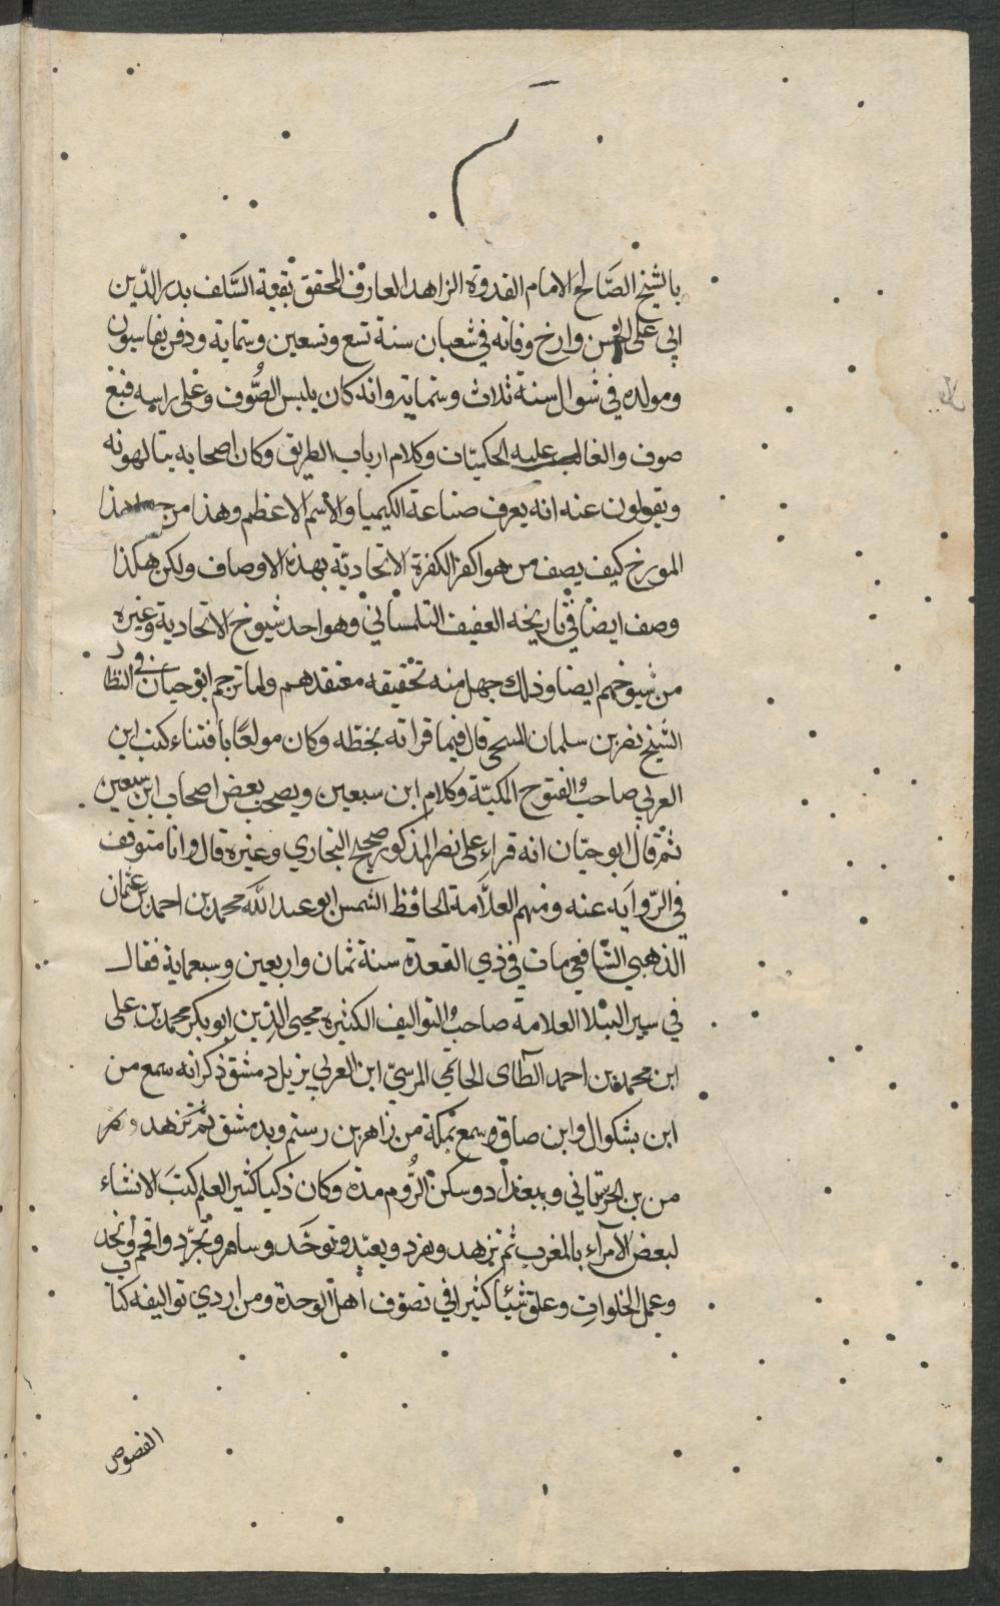 بالشيخ الصَّالح الامام القدوة الزاهد العارف المحقق بقية السَّلف بدر الدّين
ابي على الحسن وارخ وفاته في شعبان سنة تسع وتسعين وستماية ودفن بقاسيون
ومولده في شوال سنة ثلاث وستماية وانه كان يلبس الصُّوف وعلى راسه قبغ
صوف والغالب عليه الحكيّات وكلام ارباب الطريق وكان اصحابه يتالهونه
ويقولون عنه انه يعرف صناعة الكيميا والاسم الاعظم وهذا من جهل هذا
المورخ كيف يصف من هو اكفر الكفرة الاتحاديّة بهذه الاوصاف ولكن هكذا
وصف ايضاً في تاريخه العفيف التلمساني وهو احد شيوخ الاتحادية وغيره
من شيوخهم ايضا وذلك جهل منه تحقيقه معتقدهم ولما ترجم ابو حيان في النظار
الشيخ نصر بن سلمان المنبجي قال فيما قراته بخطه وكان مولعًا بافتناء كتب ابن
العربي صاحب الفتوح المكيّة وكلام ابن سبعين ويصحب بعض اصحاب ابن سبعين
ثم قال ابو حيّان انه قراء على نصر المذكور صحيح البخاري وغيره قال وانا متوقف
في الرّواية عنه ومنهم العلاّمة الحافظ الشمس ابو عبد اللّه محمد بن احمد بن عثمان
الذهبي الشافعي مات في ذي القعدة سنة ثمان واربعين وسبعماية فقال
في سير النبلا العلامة صاحب التواليف الكثيره محيي الدّين ابو بكر محمد بن على
ابن محمد بن احمد الطاى الحاتمي المرسيّ ابن العربي نزيل دمشق ذكر انه سمع من
ابن بشكوال وابن صاف وسمع بمكة من زاهر بن رستم وبدمشق ثم تزهد
من بن الحرستاني وببغداد وسكن الرُّوم مدة وكان ذكيا كثير العلم كتَبَ الانشاء
لبعض الامرآء بالمغرب ثم تزهد وتفرد وتعبّد وتوحّد وسافر وتجرّد واتهم وانجد
وعمل الخلوات وعلق شيئا كثيرا في تصوّف اهل الوحدة ومن اردي تواليفه كتاب
الفصوص